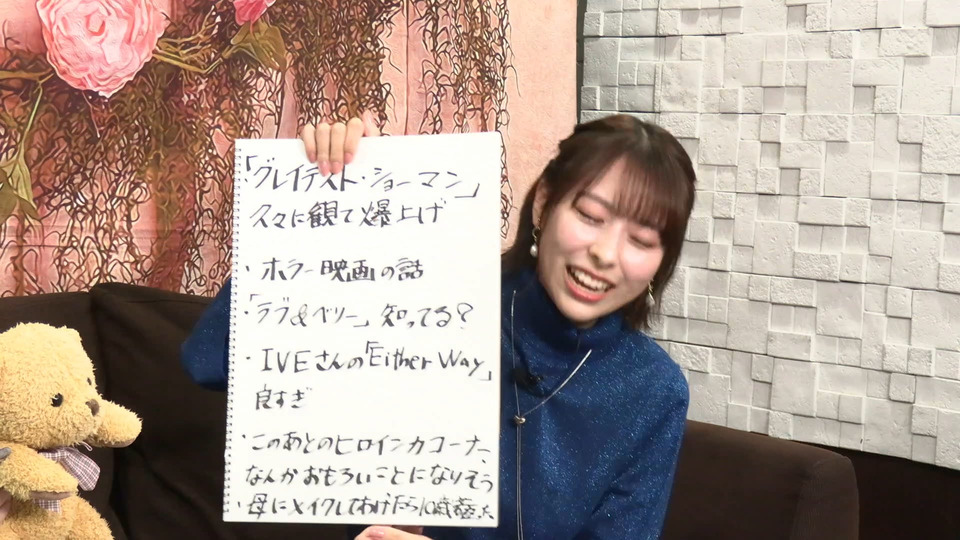 「グレイテスト・ショーマン」
久々に観て爆上げ
・ホラー映画の話
・「ラブ&ベリー」知ってる?
・IVEさんの「Either Way」
良すぎ
・このあとのヒロインカコーナー、
なんかおもろいことになりそう
・母にメイクしてあげたら10歳